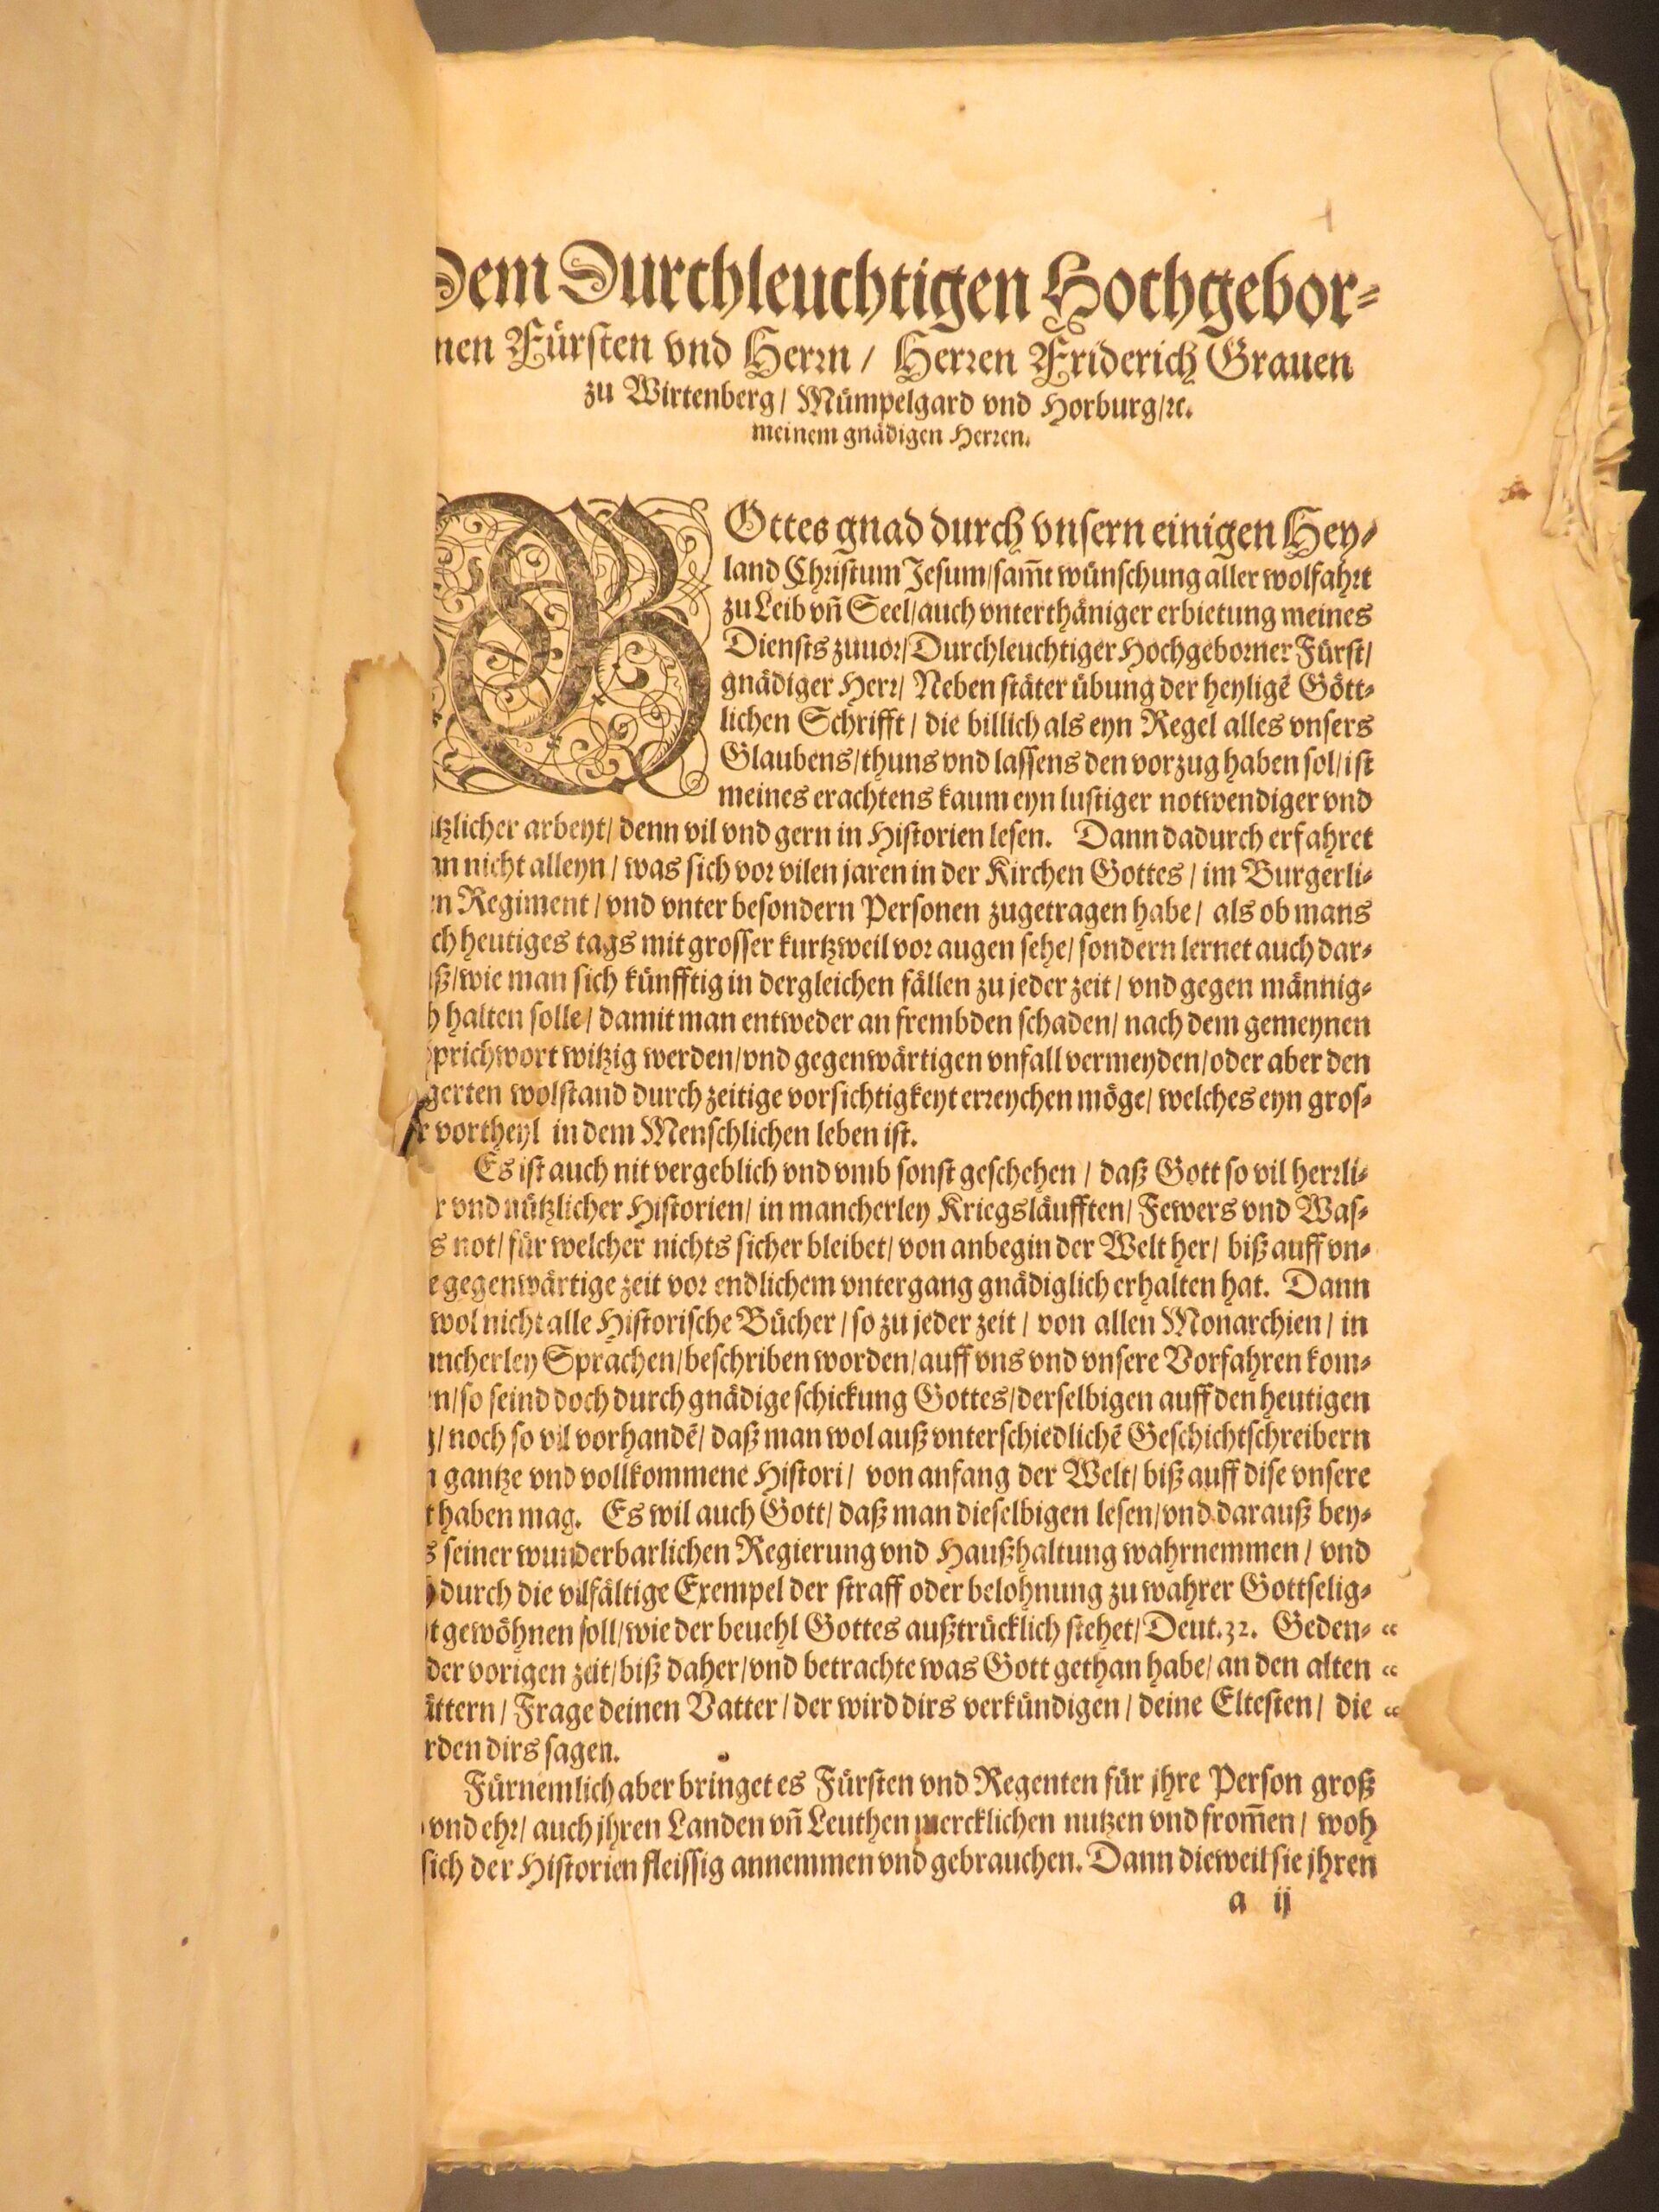 Dem Durchleuchtigen Hochgebor⸗
nen Fürsten vnd Herrn / Herren Friderich Grauen
zu Wirtenberg / Mümpelgard vnd Horburg / ꝛc.
meinem gnädigen Herren.
GOttes gnad durch vnsern einigen Hey⸗
land Christum Jesum / sam̃t wünschung aller wolfahrt
zu Leib vñ Seel / auch vnterthäniger erbietung meines
Diensts zuuor / Durchleuchtiger Hochgeborner Fürst /
gnädiger Herr / Neben stäter übung der heyligẽ Gött⸗
lichen Schrifft / die billich als eyn Regel alles vnsers
Glaubens / thuns vnd lassens den vorzug haben sol / ist
meines erachtens kaum eyn lustiger notwendiger vnd
tzlicher arbeyt / denn vil vnd gern in Historien lesen. Dann dadurch erfahret
an nicht alleyn / was sich vor vilen jaren in der Kirchen Gottes / im Burgerli⸗
en Regiment / vnd vnter besondern Personen zugetragen habe / als ob mans
ch heutiges tags mit grosser kurtzweil vor augen sehe / sondern lernet auch dar⸗
ß / wie man sich künfftig in dergleichen fällen zu jeder zeit / vnd gegen männig⸗
h halten solle / damit man entweder an frembden schaden / nach dem gemeynen
prichwort witzig werden / vnd gegenwärtigen vnfall vermeyden / oder aber den
gerten wolstand durch zeitige vorsichtigkeyt erreychen möge / welches eyn gros⸗
r vortheyl in dem Menschlichen leben ist.
Es ist auch nit vergeblich vnd vmb sonst geschehen / daß Gott so vil herrli⸗
r vnd nützlicher Historien / in mancherley Kriegsläufften / Fewers vnd Was⸗
s not / für welcher nichts sicher bleibet / von anbegin der Welt her / biß auff vn⸗
e gegenwärtige zeit vor endlichem vntergang gnädiglich erhalten hat. Dann
wol nicht alle Historische Bücher / so zu jeder zeit / von allen Monarchien / in
ncherley Sprachen / beschriben worden / auff vns vnd vnsere Vorfahren kom⸗
n / so seind doch durch gnädige schickung Gottes / derselbigen auff den heutigen
g / noch so vil vorhandẽ / daß man wol auß vnterschiedlichẽ Geschichtschreibern
n gantze vnd vollkommene Histori / von anfang der Welt / biß auff dise vnsere
t haben mag. Es wil auch Gott / daß man dieselbigen lesen / vnd darauß bey⸗
s seiner wunderbarlichen Regierung vnd Haußhaltung wahrnemmen / vnd
h durch die vilfältige Exempel der straff oder belohnung zu wahrer Gottselig⸗
t gewöhnen soll / wie der beuehl Gottes außtrücklich stehet / Deut. 32. Geden⸗ “
der vorigen zeit / biß daher / vnd betrachte was Gott gethan habe / an den alten “
ättern / Frage deinen Vatter / der wird dirs verkündigen / deine Eltesten / die “
rden dirs sagen.
Fürnemlich aber bringet es Fürsten vnd Regenten für jhre Person groß
vnd ehr / auch jhren Landen vñ Leuthen mercklichen nutzen vnd from̃en / woh
sich der Historien fleissig annemmen vnd gebrauchen. Dann dieweil sie jhren
a ij